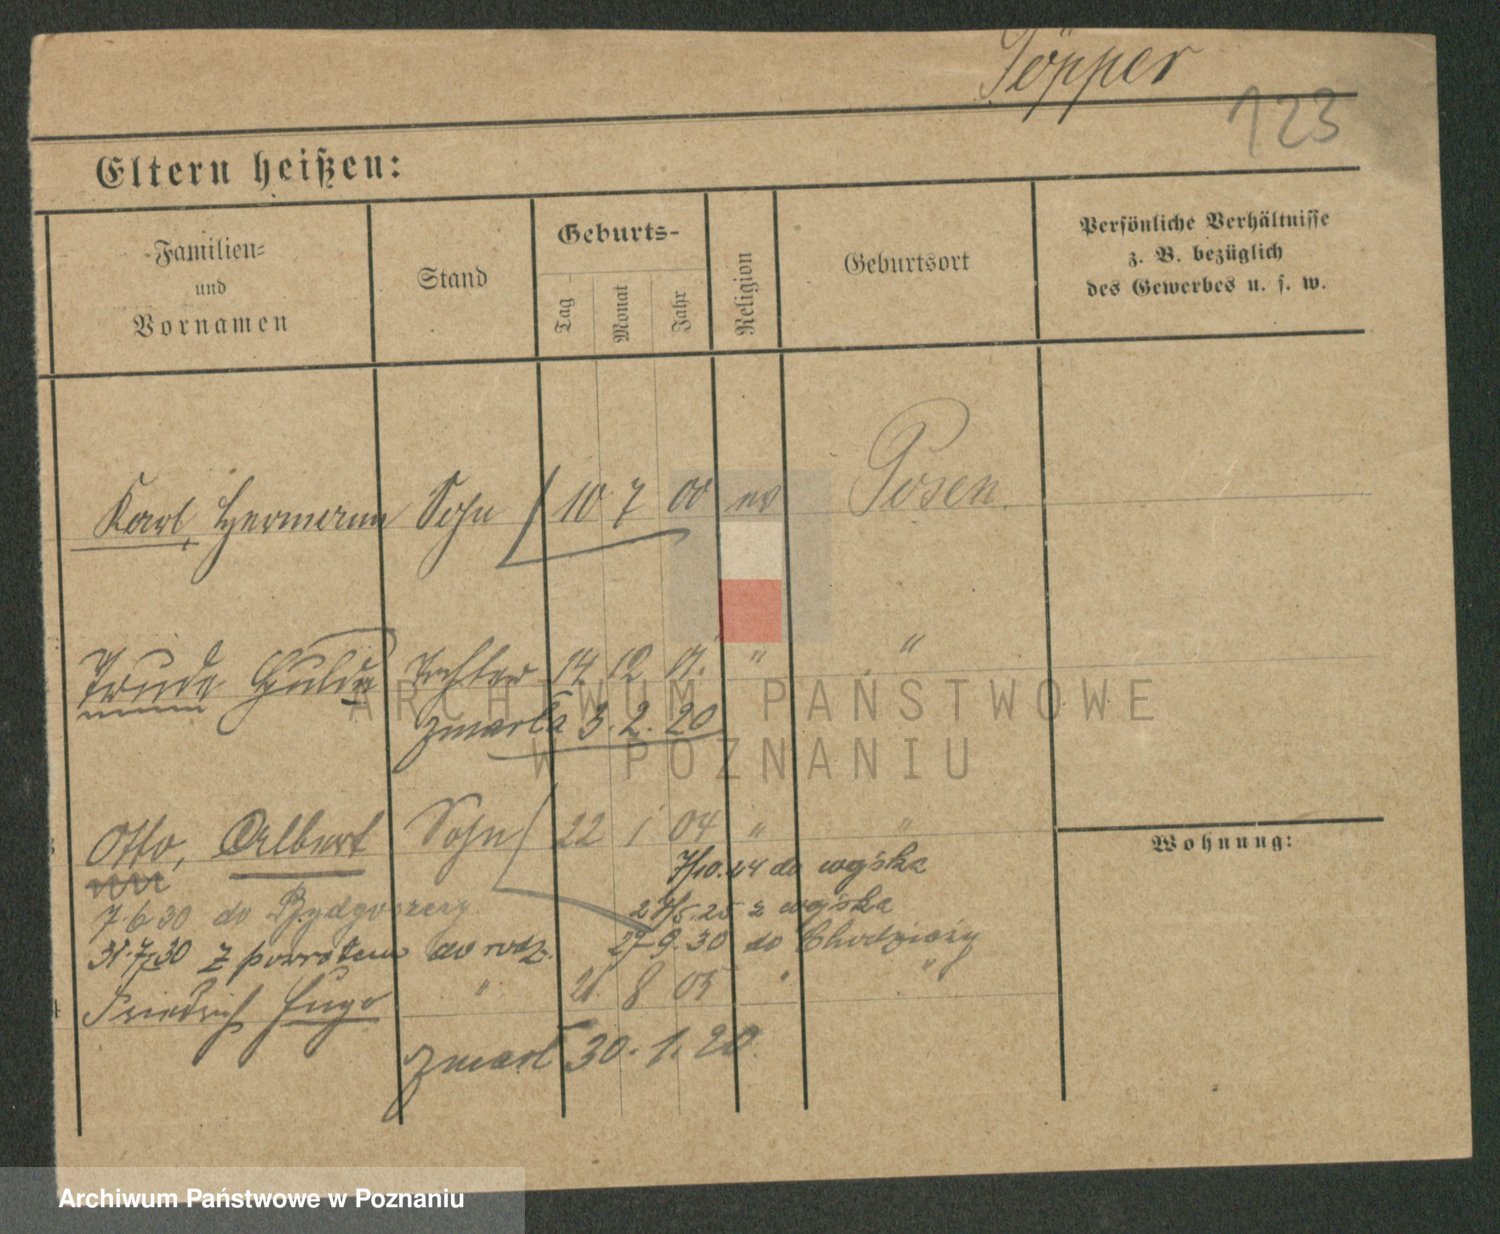 Töpper
123
Eltern heißen:
Familien=
und
Vornamen
Stand
Geburts-
Tag
Monat
Jahr
Religion
Geburtsort
Persönliche Verhältnisse
z. B. bezüglich
des Gewerbes u. s. w.
Karl, Hermann Sohn 10 7 00 ev Posen.
Trude Hulda Tochter 14 12 01. " "
zmarła 3. 2. 20
ARCHIWUM PAŃSTWOWE
W POZNANIU
Otto, Albert Sohn 22 1 04 " "
Wohnung:
7/10.24 do wojska
7.6 30 do Bydgoszczy 27/5.25 z wojska
31.7.30 z powrotem do rodz. 27 9. 30 do Chodzieży
Friedrich Hugo " 21 8 05 " "
zmarł 30. 1. 20.
Archiwum Państwowe w Poznaniu